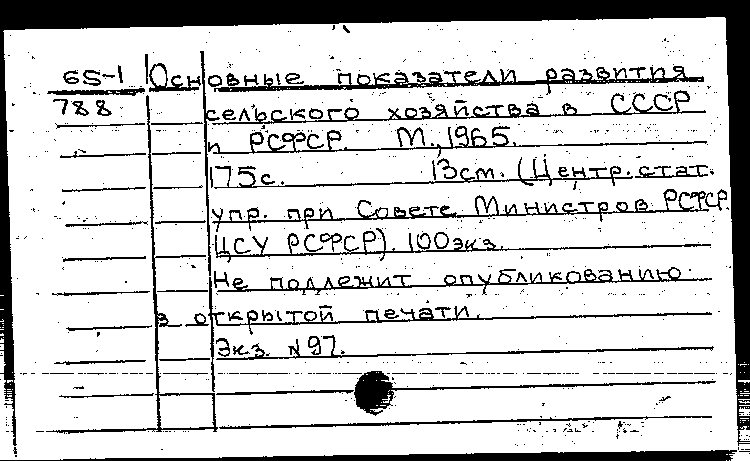 65-1 Основные показатели развития
788 сельского хозяйства в СССР
и РСФСР. М., 1965.
175с. 13см. (Центр. стат.
упр. при Совете Министров РСФСР.
ЦСУ РСФСР). 100экз.
Не подлежит опубликованию
в открытой печати.
Экз. №97.